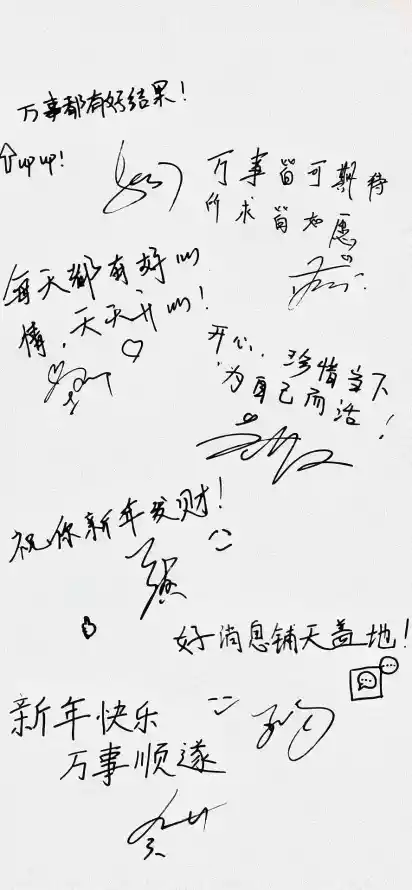 万事都有好结果！
up up!
万事皆可期待
所求皆如愿
每天都有好心
情，天天开心！
开心，珍惜当下
为自己而活！
祝你新年发财！
好消息铺天盖地！
新年快乐
万事顺遂